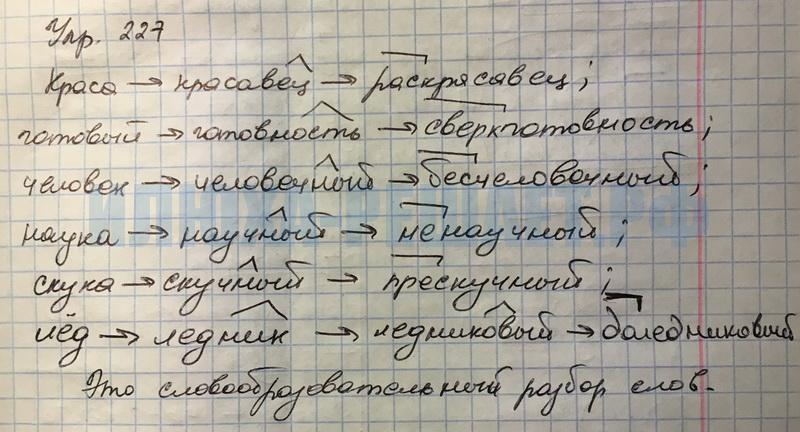 Упр. 227
Краса → красавец → раскрасавец;
готовый → готовность → сверхготовность;
человек → человечный → бесчеловечный;
наука → научный → ненаучный;
скука → скучный → прескучный;
лёд → ледник → ледниковый → доледниковый
Это словообразовательный разбор слов.